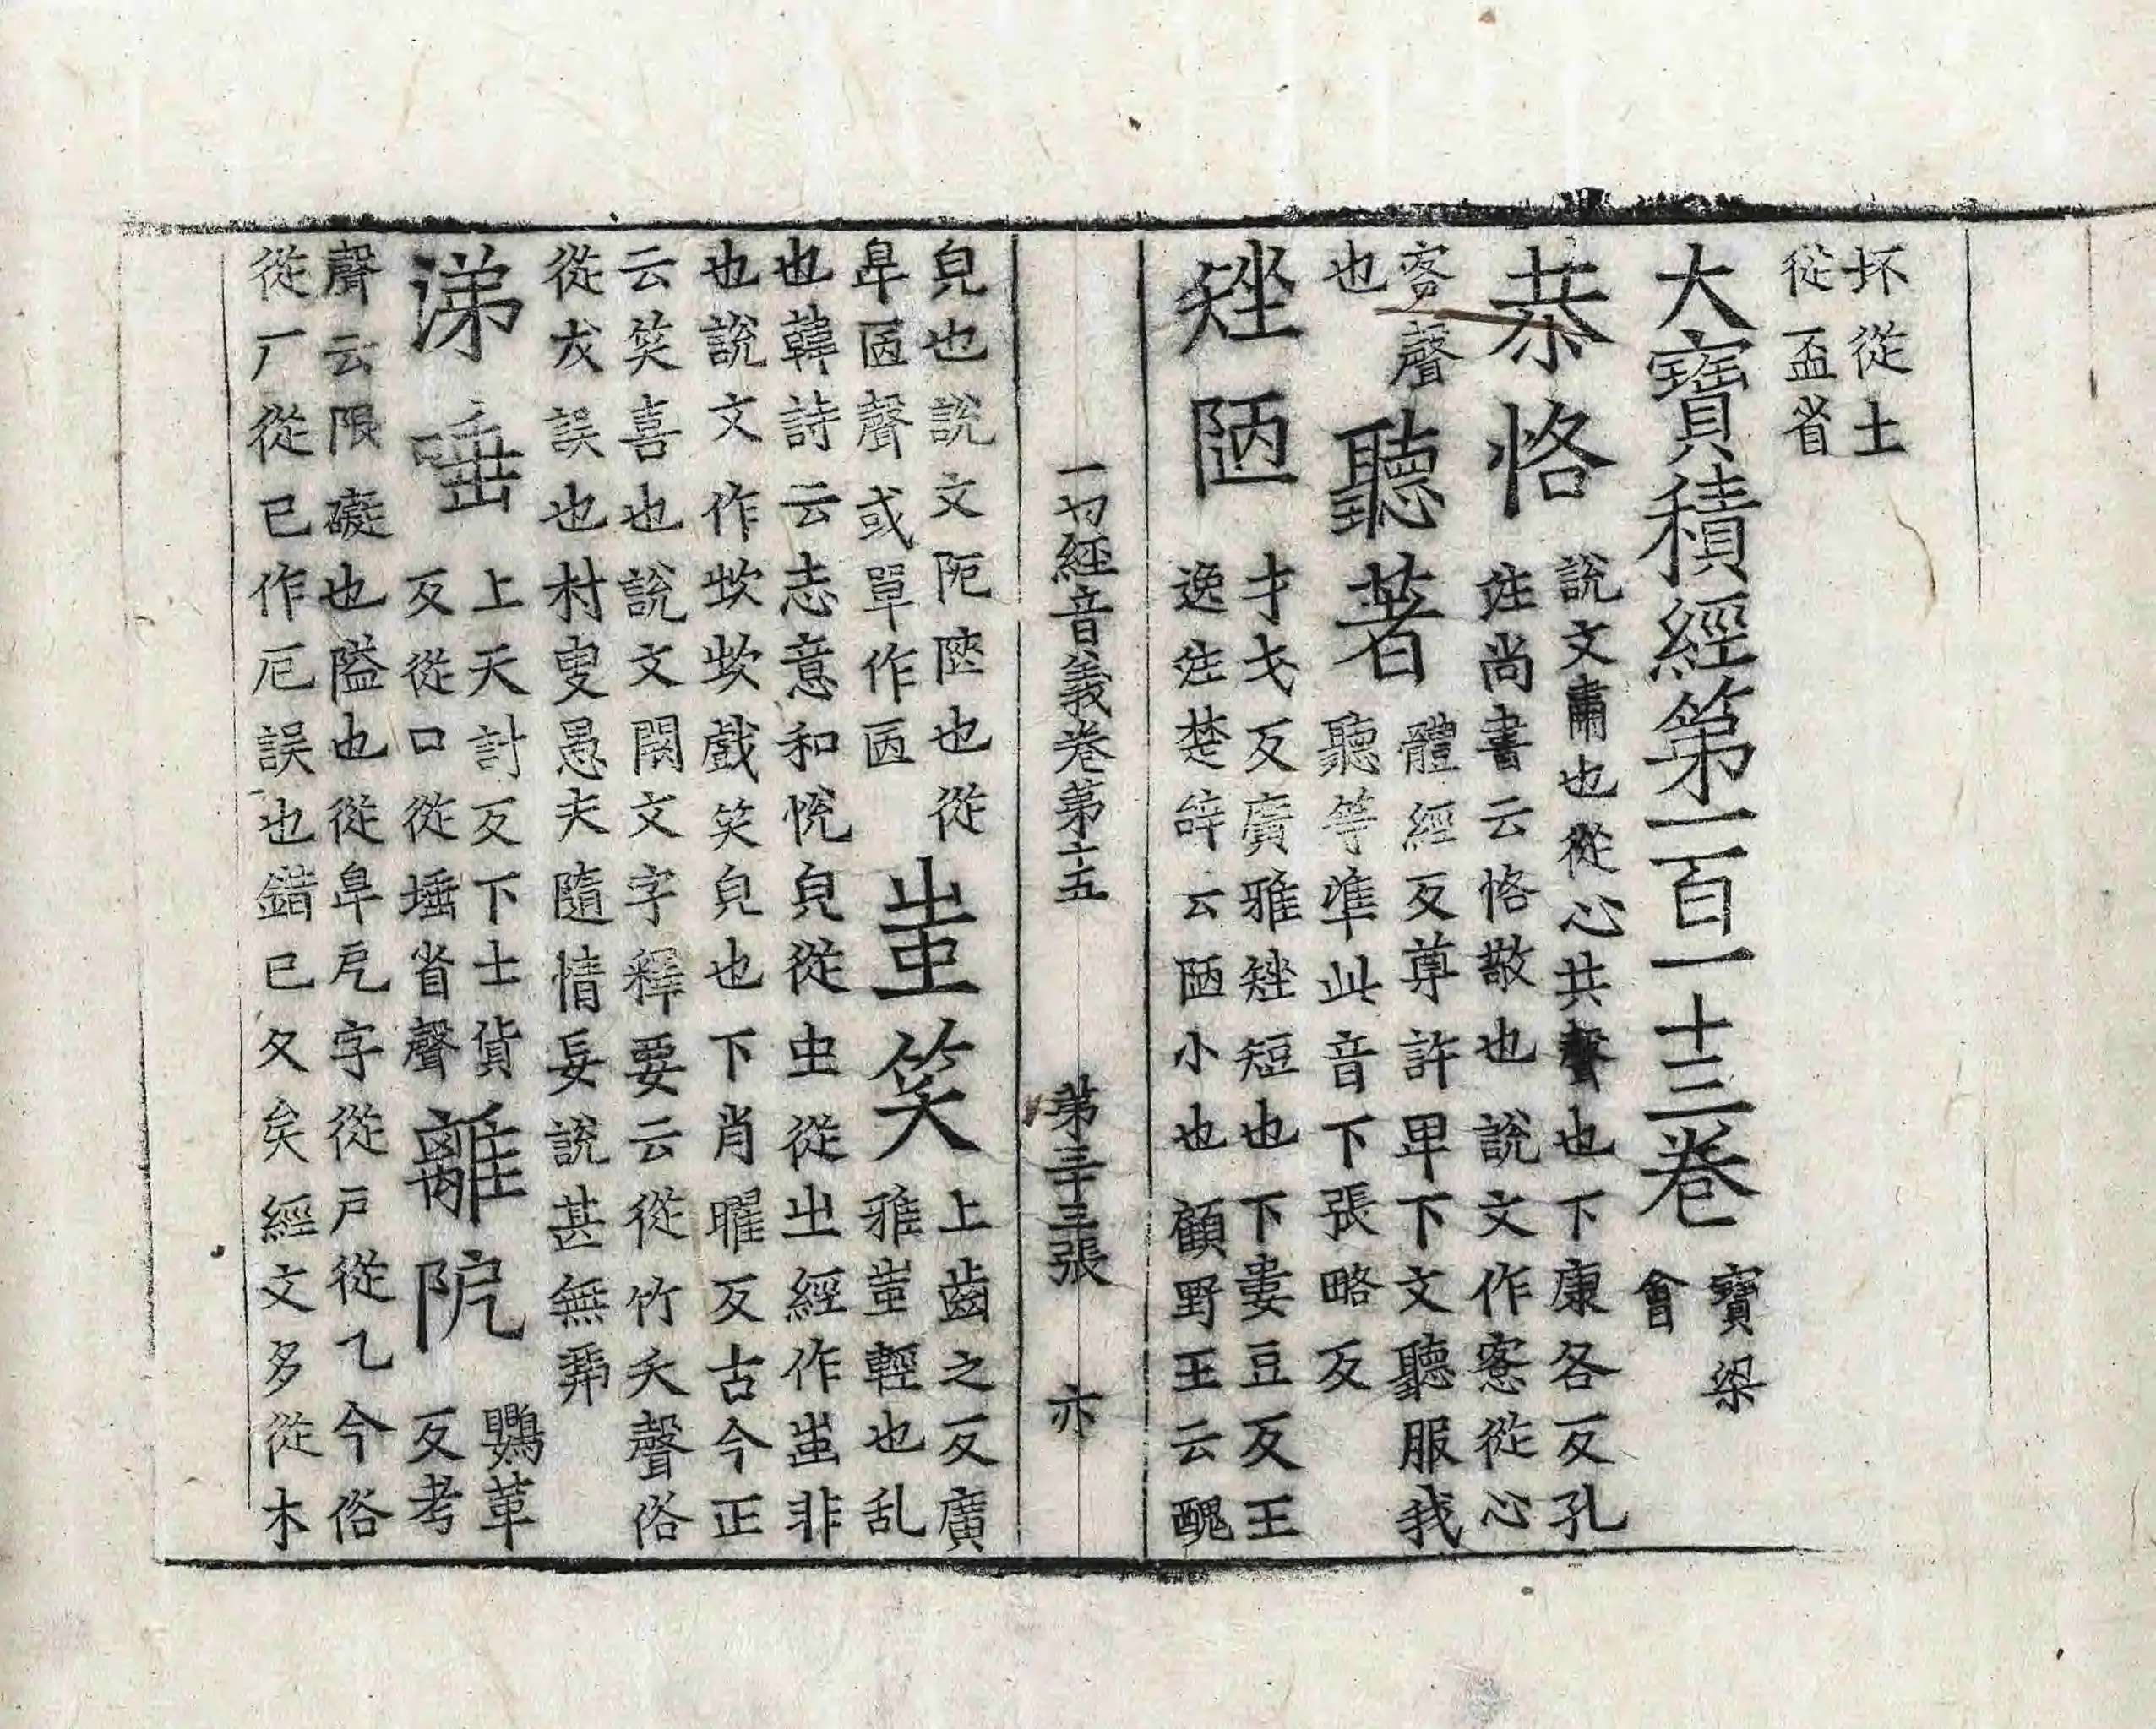 坏從土
從盃省
大寶積經第一百一十三卷
寶梁
會
恭恪
說文肅也從心共聲也下康各反孔
注尚書云恪敬也說文作愙從心
客聲
也
聽著
體經反尊許卑下文聽服我
聽等準此音下張略反
矬陋
才戈反廣雅矬短也下婁豆反王
逸注楚辝云陋小也顧野王云醜
一切經音義卷第十五 第三十三張 亦
皃也說文阨陜也從
𨸏㔷聲或單作㔷
蚩笑
上齒之反廣
雅蚩輕也乱
也韓詩云志意和悅皃從虫從㞢經作蚩非
也說文作㰞㰞戲笑皃也下肖曜反古今正
云笑喜也說文闕文字釋要云從竹夭聲俗
從犮誤也村叟愚夫隨情妄說甚無
涕唾
上天計反下土貨
反從口從埵省聲
離阨
鸚革
反考
聲云限礙也隘也從𨸏戹字從戶從乙今俗
從厂從巳作厄誤也錯已久矣經文多從木